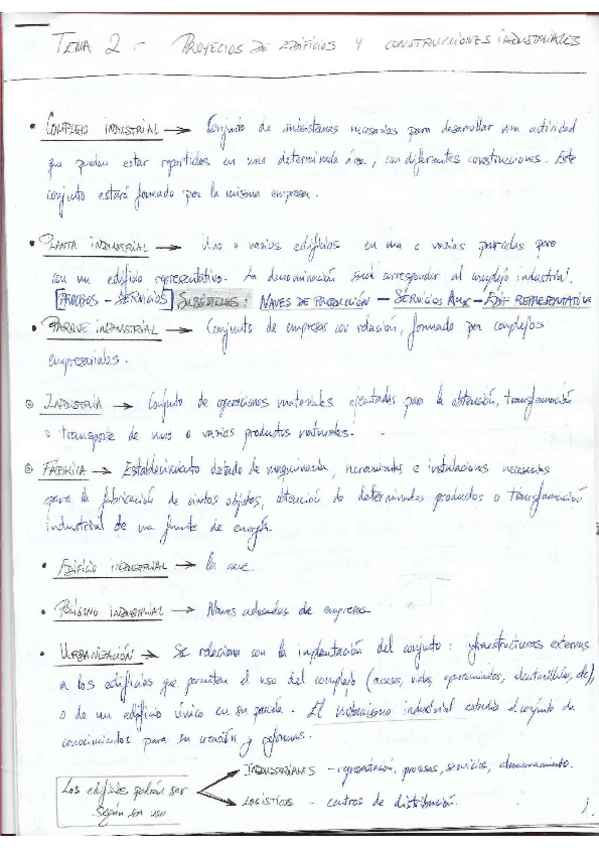 TEMA 2.- PROYECTOS DE EDIFICIOS Y CONSTRUCCIONES INDUSTRIALES
• COMPLEJO INDUSTRIAL → Conjunto de necesarias para desarrollar una actividad
que pueden estar repartidos en una determinada área, con diferentes construcciones. Este
conjunto estará formado por la misma empresa.
• PLANTA INDUSTRIAL → Uno o varios edificios en una o varias parcelas pero
con un edificio representativo. La denominación suele corresponder al complejo industrial.
PROCESOS - SERVICIOS : NAVES DE PRODUCCIÓN - SERVICIOS AUX - EDIF REPRESENTATIVO
• PARQUE INDUSTRIAL → Conjunto de empresas con relación, formado por complejos
empresariales.
INDUSTRIA → Conjunto de operaciones materiales ejecutadas para la obtención, transformación
o transporte de uno o varios productos naturales.
FÁBRICA → Establecimiento dotado de maquinaria, herramientas e instalaciones necesarias
para la fabricación de ciertos objetos, obtención de determinados productos o transformación
industrial de una fuente de energía.
• EDIFICIO INDUSTRIAL → la nave.
• POLÍGONO INDUSTRIAL → Naves adosadas de empresas
• URBANIZACIÓN → Se relaciona con la implantación del conjunto: infraestructuras externas
a los edificios que permiten el uso del complejo (accesos, viales, aparcamientos, etc),
o de un edificio único en su parcela. El urbanismo industrial estudia el conjunto de
conocimientos para su creación y reformas.
Los edificios podrán ser
según su uso
INDUSTRIALES - representación, procesos, servicios, almacenamiento.
LOGÍSTICOS - centros de distribución.